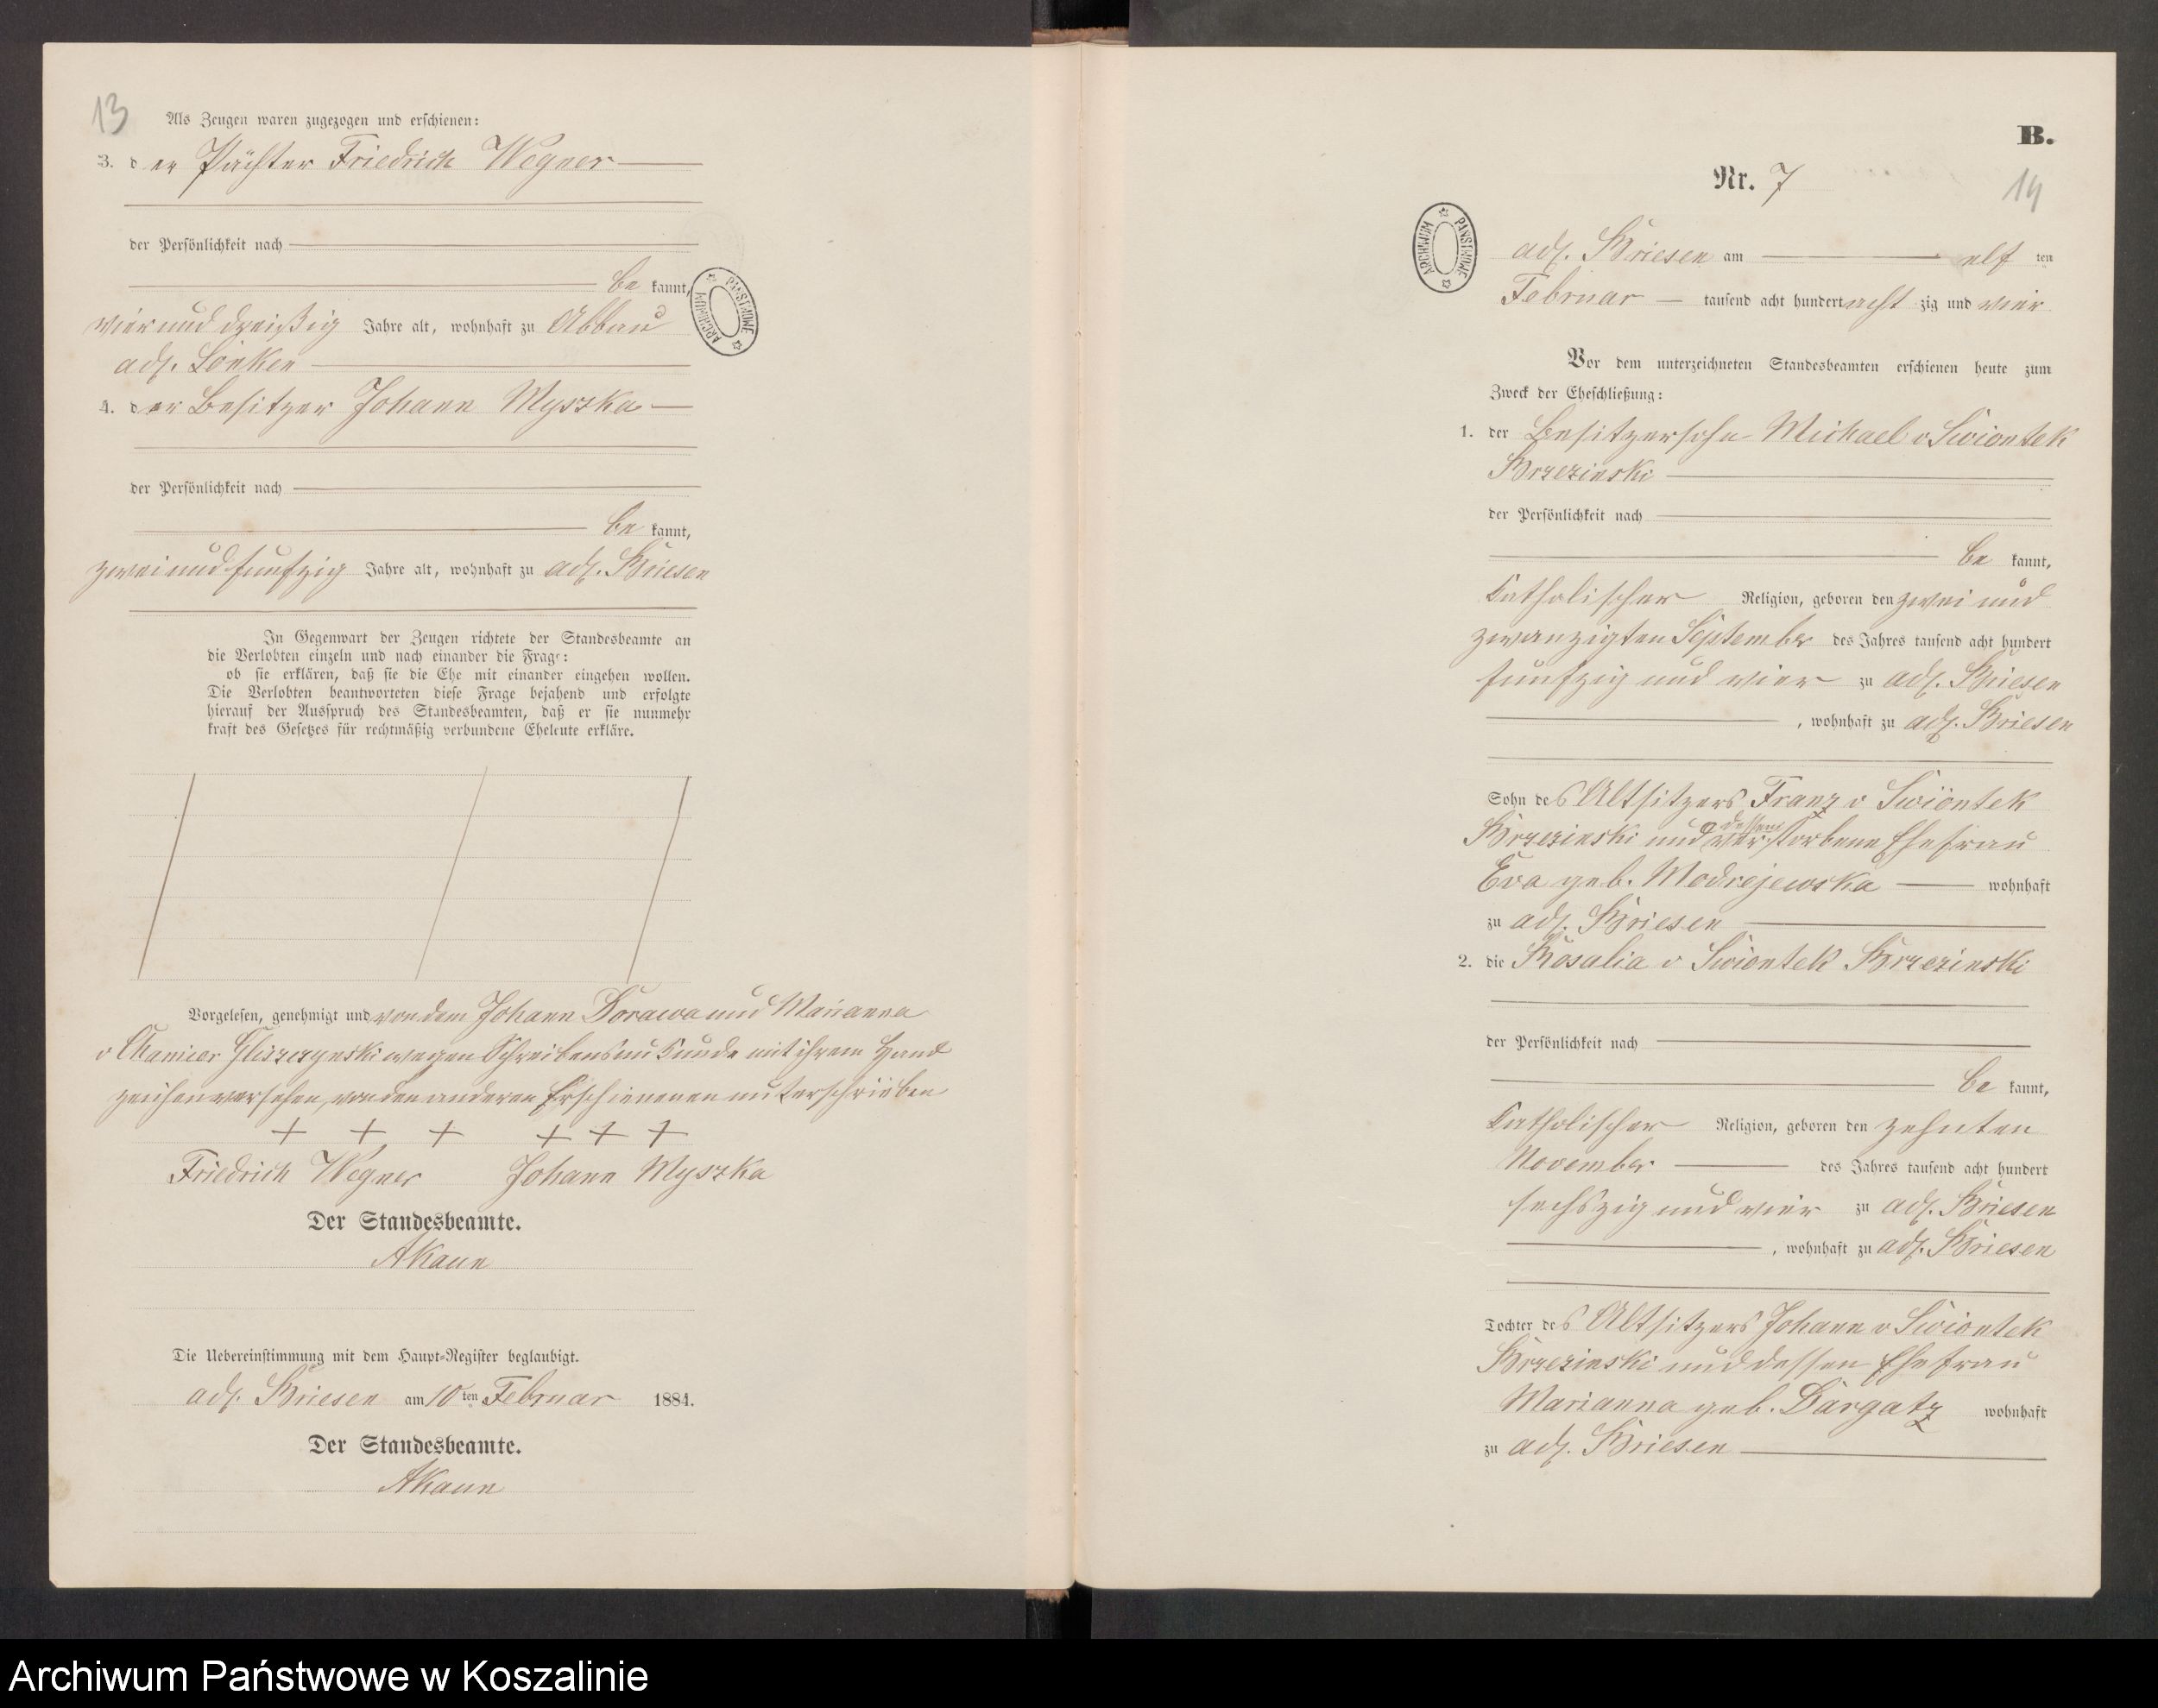 13
Als Zeugen waren zugezogen und erschienen:
3. der Pächter Friedrich Wegner
der Persönlichkeit nach
bekannt,
vier und dreißig Jahre alt, wohnhaft zu Abbau
adl. Lonken
4. der Besitzer Johann Myszka
der Persönlichkeit nach
bekannt,
zwei und funfzig Jahre alt, wohnhaft zu adl. Briesen
In Gegenwart der Zeugen richtete der Standesbeamte an
die Verlobten einzeln und nach einander die Frage:
ob sie erklären, daß sie die Ehe mit einander eingehen wollen.
Die Verlobten beantworteten diese Frage bejahend und erfolgte
hierauf der Ausspruch des Standesbeamten, daß er sie nunmehr
kraft des Gesetzes für rechtmäßig verbundene Eheleute erkläre.
Vorgelesen, genehmigt und von dem Johann Dorawa und Marianna
v Chamier Gliszczynski wegen Schreibensunkunde mit ihrem Hand
zeichen versehen, von den anderen Erschienenen unterschrieben
+ + + + + +
Friedrich Wegner Johann Myszka
Der Standesbeamte.
AKaun
Die Uebereinstimmung mit dem Haupt-Register beglaubigt.
adl. Briesen am 10ten Februar 1884.
Der Standesbeamte.
AKaun
ARCHIWUM PAŃSTWOWE
B.
Nr. 7
14
ARCHIWUM PAŃSTWOWE
adl. Briesen am elf ten
Februar tausend acht hundert acht zig und vier
Vor dem unterzeichneten Standesbeamten erschienen heute zum
Zweck der Eheschließung:
1. der Besitzersohn Michael v Swiontek
Brzezinski
der Persönlichkeit nach
bekannt,
katholischer Religion, geboren den zwei und
zwanzigten September des Jahres tausend acht hundert
funfzig und vier zu adl. Briesen
, wohnhaft zu adl. Briesen
Sohn des Altsitzers Franz v Swiontek
Brzezinski und dessen verstorbene Ehefrau
Eva geb. Modrejewska wohnhaft
zu adl. Briesen
2. die Rosalia v Swiontek Brzezinski
der Persönlichkeit nach
bekannt,
katholischer Religion, geboren den zehnten
November des Jahres tausend acht hundert
sechszig und vier zu adl. Briesen
, wohnhaft zu adl. Briesen
Tochter des Altsitzers Johann v Swiontek
Brzezinski und dessen Ehefrau
Marianna geb. Dargatz wohnhaft
zu adl. Briesen
Archiwum Państwowe w Koszalinie